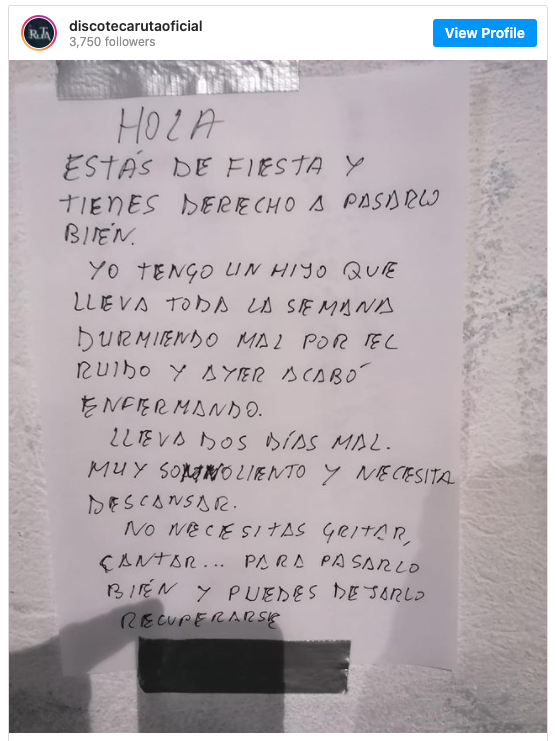 discotecarutaoficial
3,750 followers
View Profile
RUTA
HOLA
ESTÁS DE FIESTA Y
TIENES DERECHO A PASARLO
BIÉN.
YO TENGO UN HIJO QUE
LLEVA TODA LA SEMANA
DURMIENDO MAL POR EL
RUIDO Y AYER ACABÓ
ENFERMANDO.
LLEVA DOS DÍAS MAL.
MUY SOMNOLIENTO Y NECESITA
DESCANSAR.
NO NECESITAS GRITAR,
CANTAR... PARA PASARLO
BIÉN Y PUEDES DEJARLO
RECUPERARSE